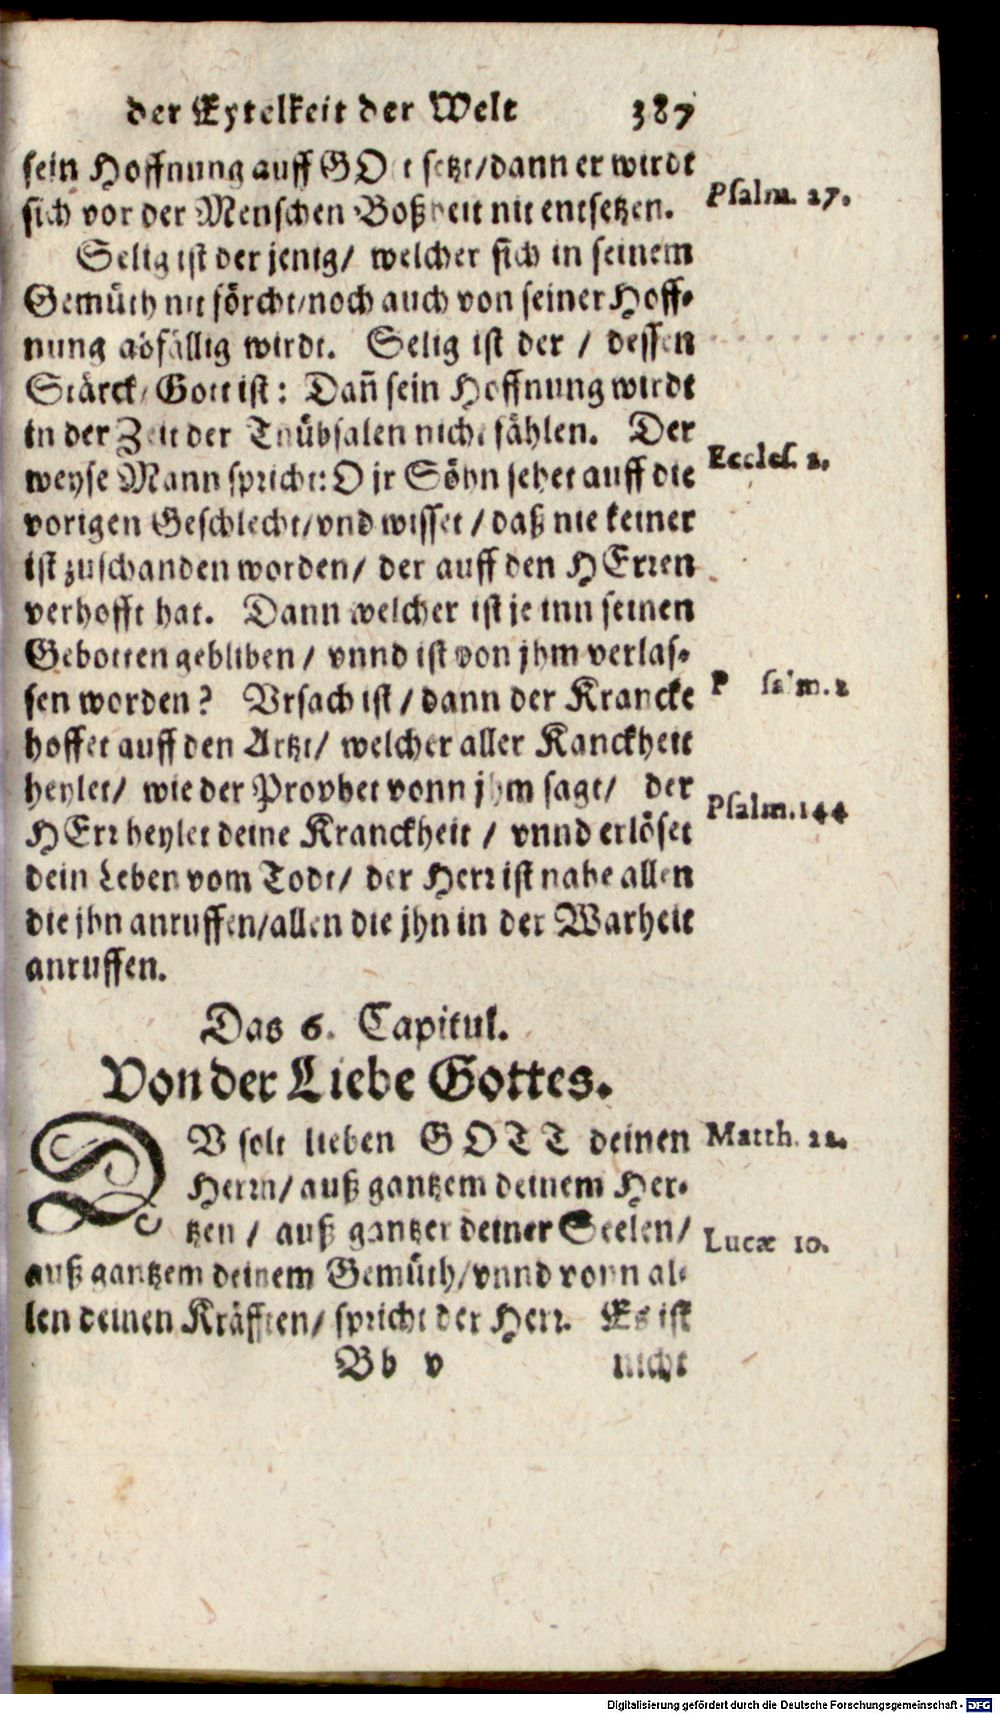 der Eytelkeit der Welt 387
sein Hoffnung auff GOt setzt/dann er wirdt
sich vor der Menschen Boßheit nit entsetzen.
Psalm. 27.
Selig ist der jenig/ welcher sich in seinem
Gemüth nit förcht/noch auch von seiner Hoff-
nung abfällig wirdt. Selig ist der / dessen
Stärck/ Gott ist: Dañ sein Hoffnung wirdt
in der Zeit der Trübsalen nicht fählen. Der
weyse Mann spricht: O jr Söhn sehet auff die
Eccles. 2.
vorigen Geschlecht/vnd wisset / daß nie keiner
ist zuschanden worden/ der auff den HErren
verhofft hat. Dann welcher ist je inn seinen
Gebotten gebliben / vnnd ist von jhm verlas-
sen worden? Vrsach ist / dann der Krancke
Psalm. 2
hoffet auff den Artzt/ welcher aller Kanckheit
heylet/ wie der Prophet vonn jhm sagt/ der
HErr heylet deine Kranckheit / vnnd erlöset
Psalm. 144
dein Leben vom Todt/ der Herr ist nahe allen
die jhn anruffen/allen die jhn in der Warheit
anruffen.
Das 6. Capitul.
Von der Liebe Gottes.
DV solt lieben GOTT deinen
Matth. 22.
Herrn/ auß gantzem deinem Her-
tzen / auß gantzer deiner Seelen/
Lucæ 10.
auß gantzem deinem Gemüth/vnnd vonn al-
len deinen Kräfften/ spricht der Herr. Es ist
Bb v nicht
Digitalisierung gefördert durch die Deutsche Forschungsgemeinschaft - DFG